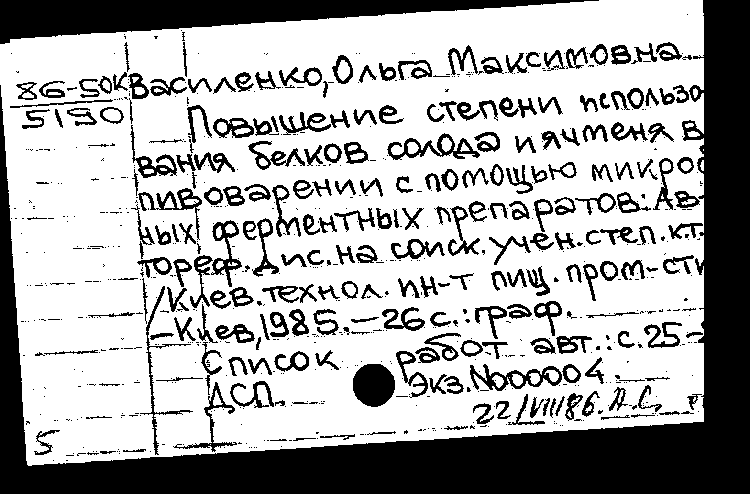 86-50к Василенко, Ольга Максимовна.
5190 Повышение степени использо
вания белков солода и ячменя в
пивоварении с помощью микроб
ных ферментных препаратов: Ав-
тореф. дис. на соиск. учен. степ. к.т.
/Киев. технол. ин-т пищ. пром-сти
-Киев, 1985.-26 с.: граф.
Список работ авт.: с. 25-
ДСП. Экз. №000004.
22/VIII86. А.С.
5